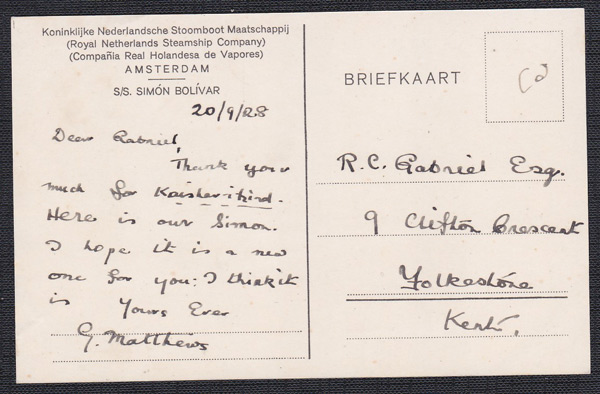 Koninklijke Nederlandsche Stoomboot Maatschappij
(Royal Netherlands Steamship Company)
(Compañia Real Holandesa de Vapores)
AMSTERDAM
S/S. SIMÓN BOLÍVAR
20/9/28
Dear Gabriel,
Thank you
much for Kaisher-i-hind.
Here is our Simon.
I hope it is a new
one for you: I think it
is Yours Ever
G. Matthews
BRIEFKAART
R.C. Gabriel Esq.
9 Clifton Crescent
Folkestone
Kent.